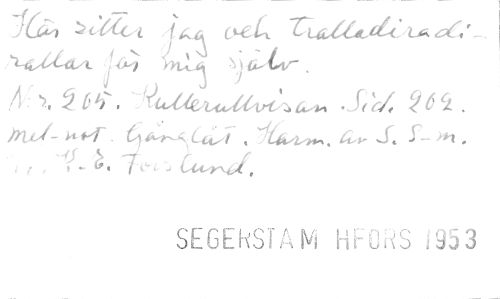 Här sitter jag och tralladiradi-
rallar för mig själv.
Nr. 205. Kullerullvisan. Sid. 202.
mel-not. Gånglåt. Harm. av S. S-m.
K.-E. Forslund.
SEGERSTAM HFORS 1953